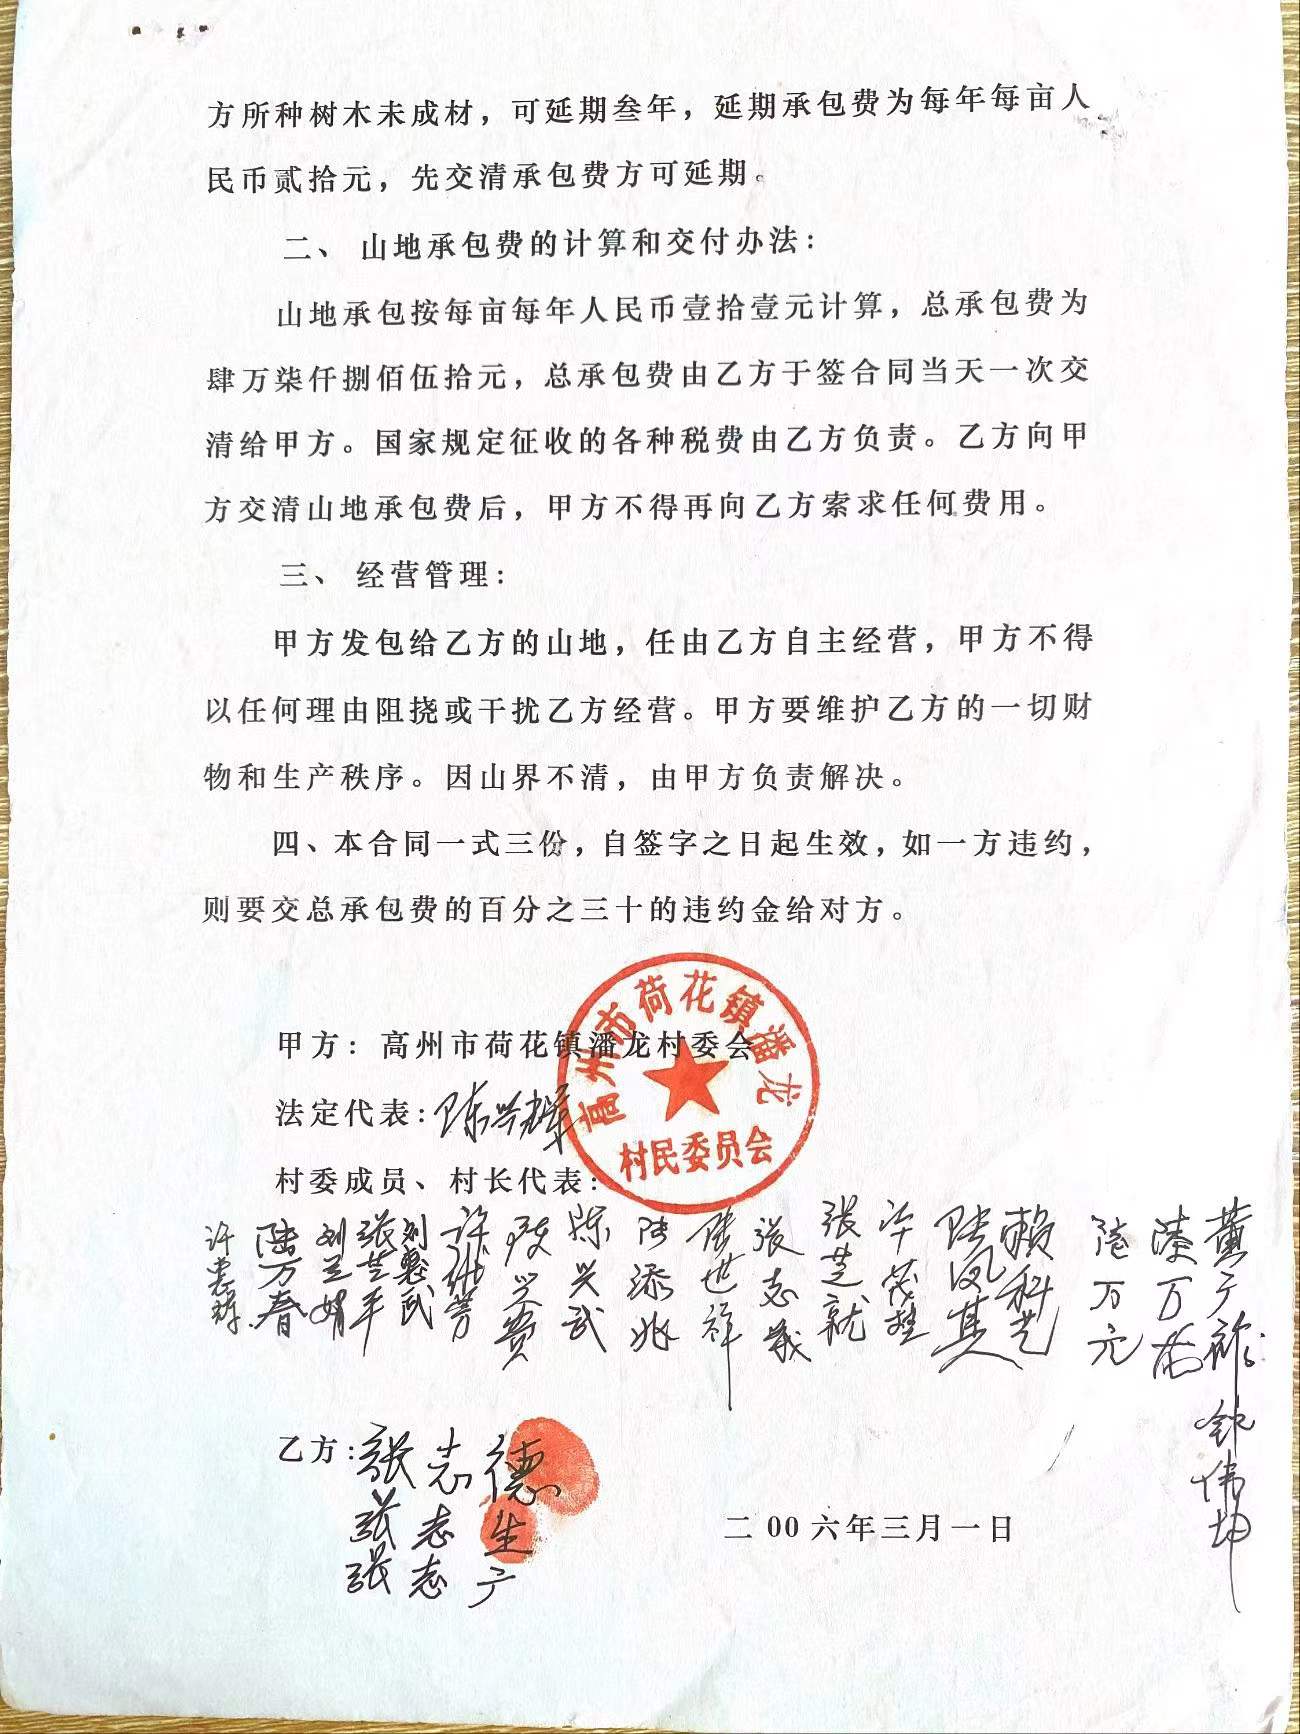 方所种树木未成材，可延期叁年，延期承包费为每年每亩人
民币贰拾元，先交清承包费方可延期。
二、 山地承包费的计算和交付办法：
山地承包按每亩每年人民币壹拾壹元计算，总承包费为
肆万柒仟捌佰伍拾元，总承包费由乙方于签合同当天一次交
清给甲方。国家规定征收的各种税费由乙方负责。乙方向甲
方交清山地承包费后，甲方不得再向乙方索求任何费用。
三、 经营管理：
甲方发包给乙方的山地，任由乙方自主经营，甲方不得
以任何理由阻挠或干扰乙方经营。甲方要维护乙方的一切财
物和生产秩序。因山界不清，由甲方负责解决。
四、本合同一式三份，自签字之日起生效，如一方违约，
则要交总承包费的百分之三十的违约金给对方。
高州市荷花镇潘龙
村民委员会
甲方：高州市荷花镇潘龙村委会
法定代表：陈兴辉
村委成员、村长代表：
陆万春
刘兰娟
张芝平
刘惠武
陈兴武
陆添兆
陆世祥
张志义
张芝就
许茂
陆凤其
赖科
陆万元
万
黄
钟伟坤
乙方：张志德
张志生
张志广
二00六年三月一日